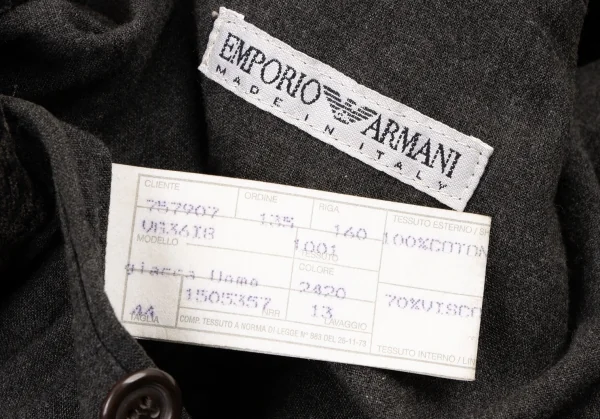 EMPORIO ARMANI
MADE IN ITALY
CLIENTE ORDINE RIGA TESSUTO ESTERNO / SH
757907 135 160 100%COTON
VG36I8 1001
MODELLO TESSUTO
giacca Uomo COLORE
2420 70%VISCO
1505357 13
44 NRR LAVAGGIO
TAGLIA COMP. TESSUTO A NORMA DI LEGGE N° 883 DEL 26-11-73 TESSUTO INTERNO / LIN